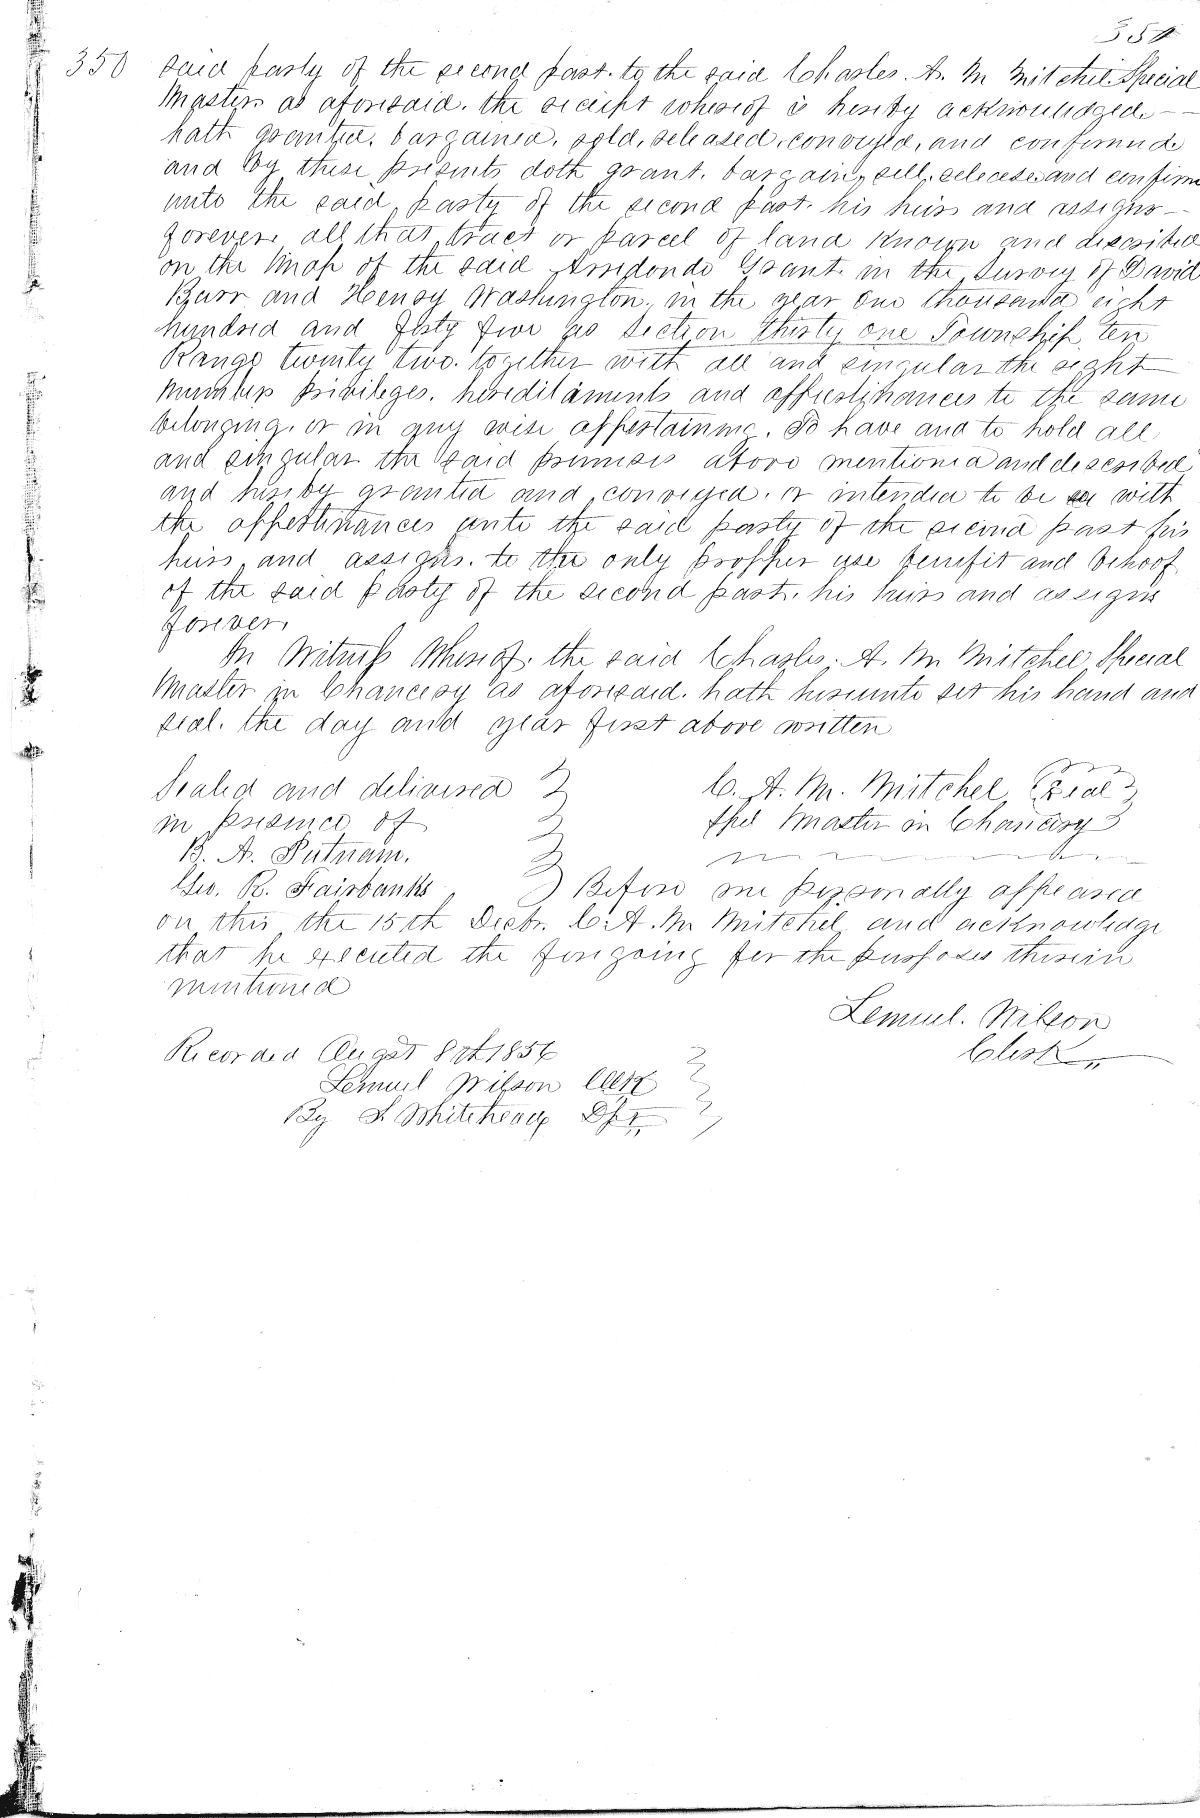 350
350 said party of the second part. to the said Charles. A. M Mitchel. Special
Master as aforesaid. the receipt whereof is hereby acknowledged. --
hath granted. bargained, sold, released, conveyed, and confirmed
and by these presents doth grant. bargain, sell, release and confirm
unto the said party of the second part. his heirs and assigns -
forever. all that tract or parcel of land known and described
on the Map of the said Arredondo Grant. in the Survey of David
Burr and Henry Washington, in the year one thousand eight
hundred and forty five as Section thirty one Township ten
Range twenty two. together with all and singular the right
members privileges. hereditaments and appertinances to the same
belonging. or in any wise appertaining. To have and to hold all
and singular the said premises above mentioned and described
and hereby granted and conveyed. or intended to be with
the appertinances unto the said party of the second part his
heirs and assigns. to the only propper use benefit and behoof
of the said party of the second part. his heirs and assigns
forever.
In Witness Whereof. the said Charles. A. M Mitchel Special
Master in Chancery as aforesaid. hath hereunto set his hand and
seal. the day and year first above written
Sealed and delivered C. A. M. Mitchel Seal
in presence of Spel Master in Chancery
B. A. Putnam.
Geo. R. Fairbanks Before me personally appeared
on this the 15th Decbr. C. A. M Mitchel and acknowledge
that he executed the foregoing for the purposes therein
mentioned
Lemuel. Wilson
Clerk
Recorded Augst 8th 1856
Lemuel Wilson Clerk
By S. Whitehead Dpt